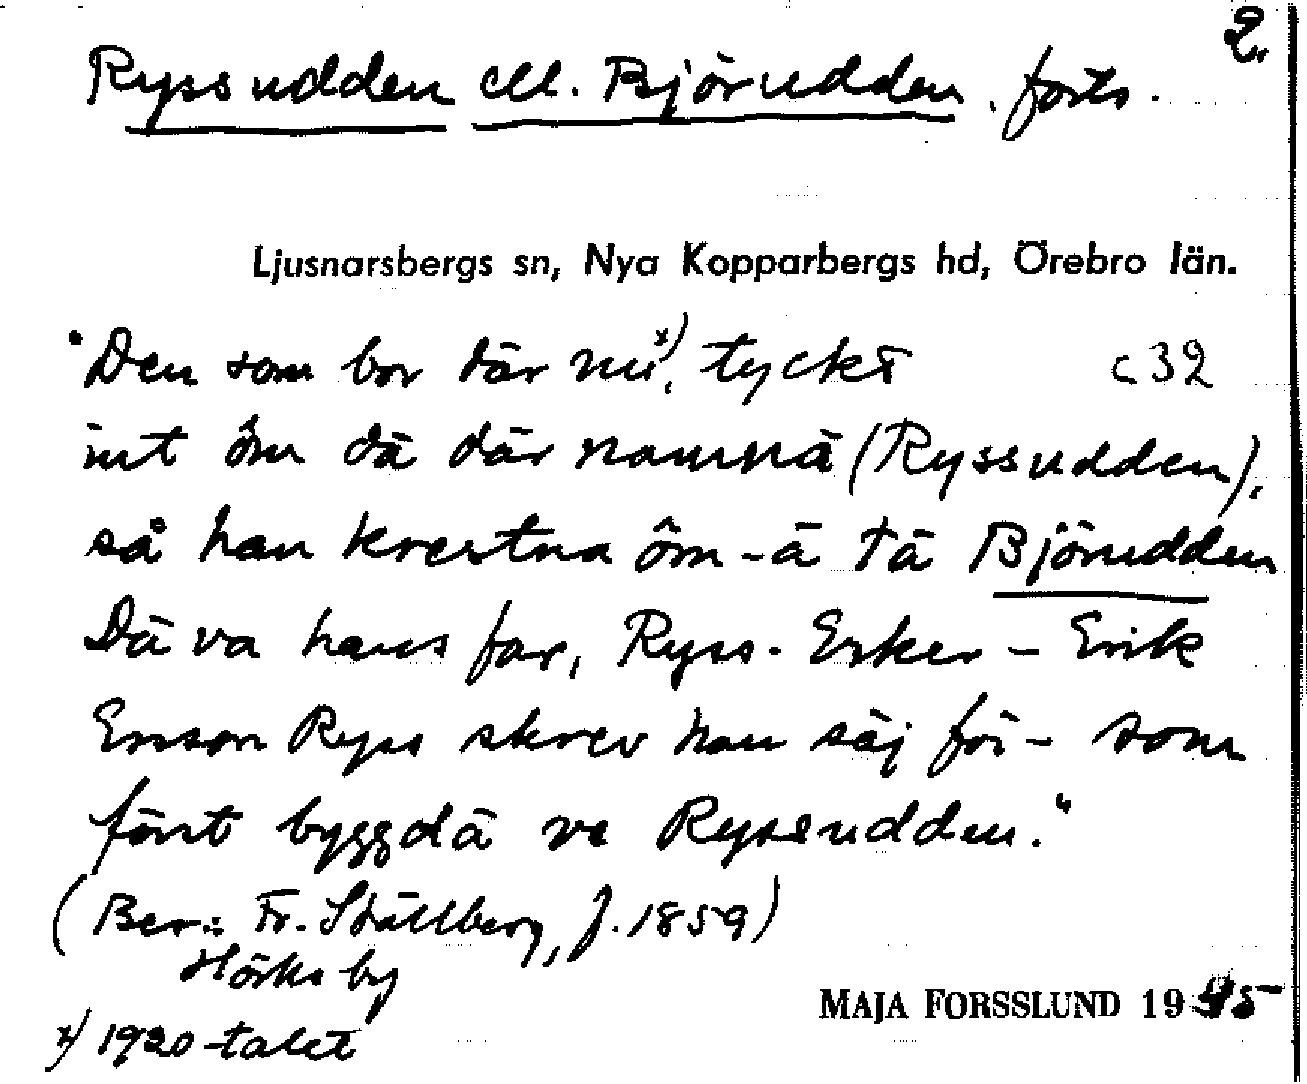 2.
Ryssudden ell. Björudden. forts.
Ljusnarsbergs sn, Nya Kopparbergs hd, Örebro län.
"Den som bor där nu x), tyckt c 32
int öm dä där namnä (Ryssudden),
så han krestna öm-ä tä Björudden
Dä va hans far, Ryss-Erker – Erik
Ersson Ryss skrev han säj för – som
först byggdä ve Ryssudden."
(Ber.: Fr. Ställberg, f. 1859)
Hörks by
MAJA FORSSLUND 1945
x) 1920-talet